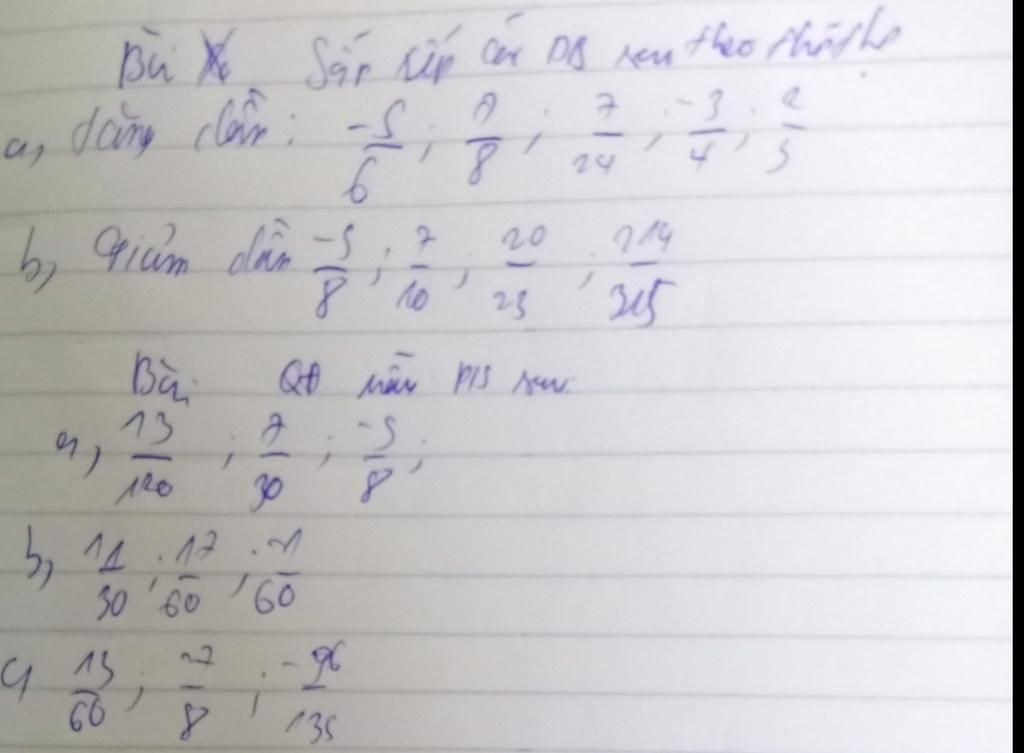 Bài Sắp xếp các PS sau theo thứ tự
a, tăng dần: -5/6 ; 7/8 ; 7/24 ; -3/4 ; 2/3
b, Giảm dần -5/8 ; 7/10 ; 20/23 ; 214/315
Bài: QĐ mẫu PS sau:
a, 13/120 ; 7/30 ; -5/8 ;
b, 11/30 ; 17/60 ; -1/60
c, 13/60 ; -7/8 ; -96/135